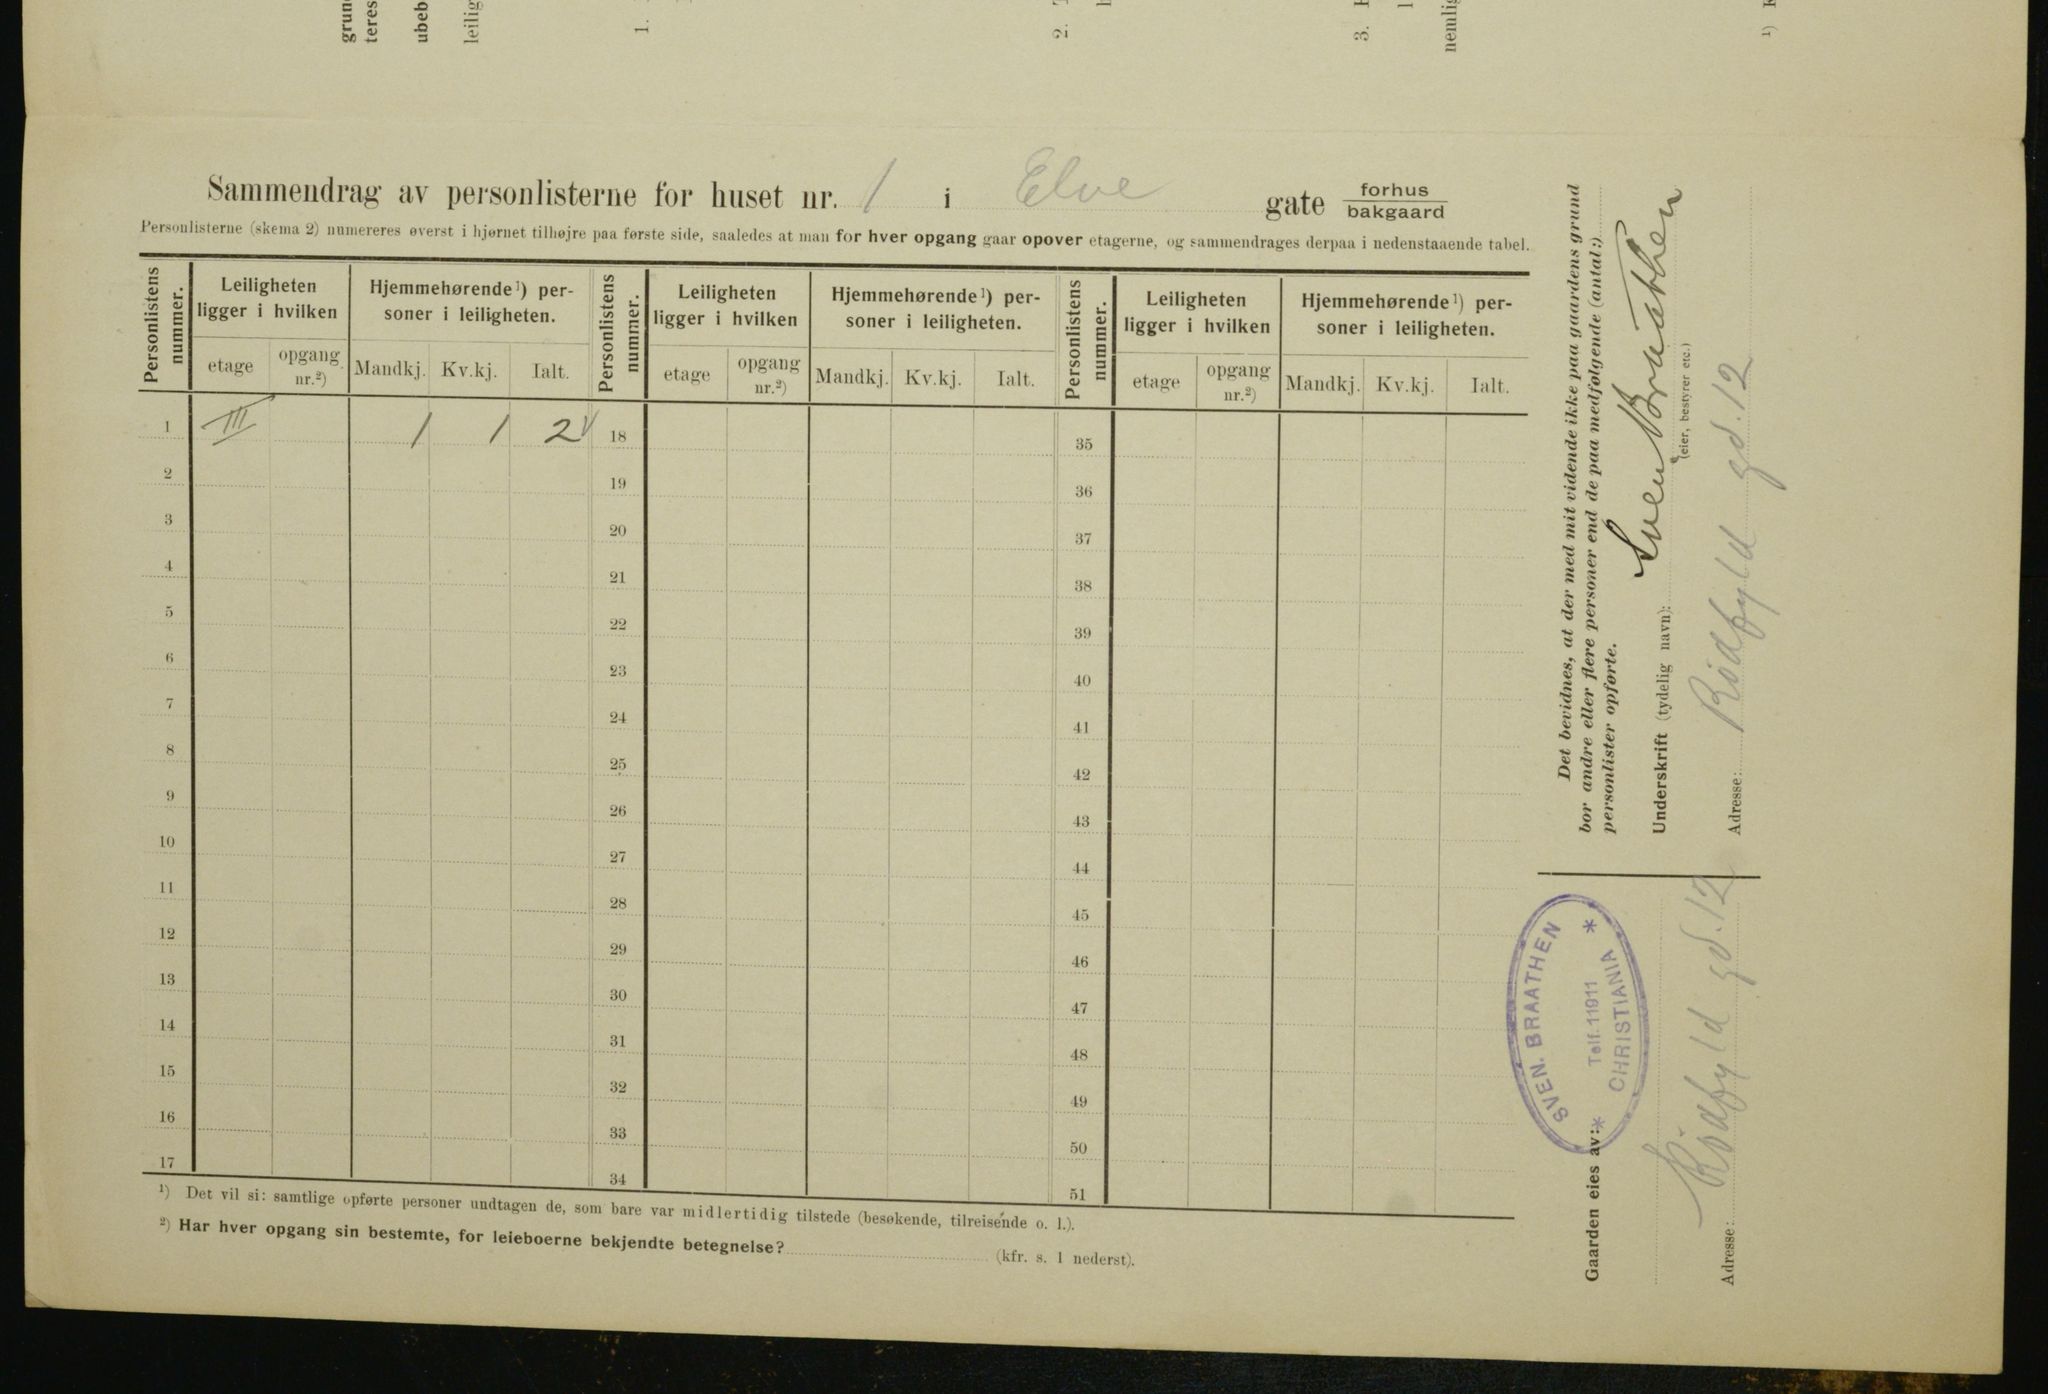 grun
teres
ubeb
leilig
1.
2.
3.
nemlig
1)
Sammendrag av personlisterne for huset nr. 1 i Elve gate forhus
bakgaard
Personlisterne (skema 2) numereres øverst i hjørnet tilhøjre paa første side, saaledes at man for hver opgang gaar opover etagerne, og sammendrages derpaa i nedenstaaende tabel.
Personlistens nummer. Leiligheten ligger i hvilken Hjemmehørende 1) personer i leiligheten. Personlistens nummer. Leiligheten ligger i hvilken Hjemmehørende 1) personer i leiligheten. Personlistens nummer. Leiligheten ligger i hvilken Hjemmehørende 1) personer i leiligheten.
etage opgang nr.2) Mandkj. Kv.kj. Ialt. etage opgang nr.2) Mandkj. Kv.kj. Ialt. etage opgang nr.2) Mandkj. Kv.kj. Ialt.
1 III 1 1 2 18 35
2 19 36
3 20 37
4 21 38
5 22 39
6 23 40
7 24 41
8 25 42
9 26 43
10 27 44
11 28 45
12 29 46
13 30 47
14 31 48
15 32 49
16 33 50
17 34 51
1) Det vil si: samtlige opførte personer undtagen de, som bare var midlertidig tilstede (besøkende, tilreisende o. l.).
2) Har hver opgang sin bestemte, for leieboerne bekjendte betegnelse? (kfr. s. 1 nederst).
Det bevidnes, at der med mit vidende ikke paa gaardens grund
bor andre eller flere personer end de paa medfølgende (antal:)
personlister opførte.
Underskrift (tydelig navn): Sven Braathen
(eier, bestyrer etc.)
Adresse: Rødfyld gd. 12
Gaarden eies av:
SVEN. BRAATHEN
Telf. 11911
CHRISTIANIA
Adresse: Rødfyld gd. 12